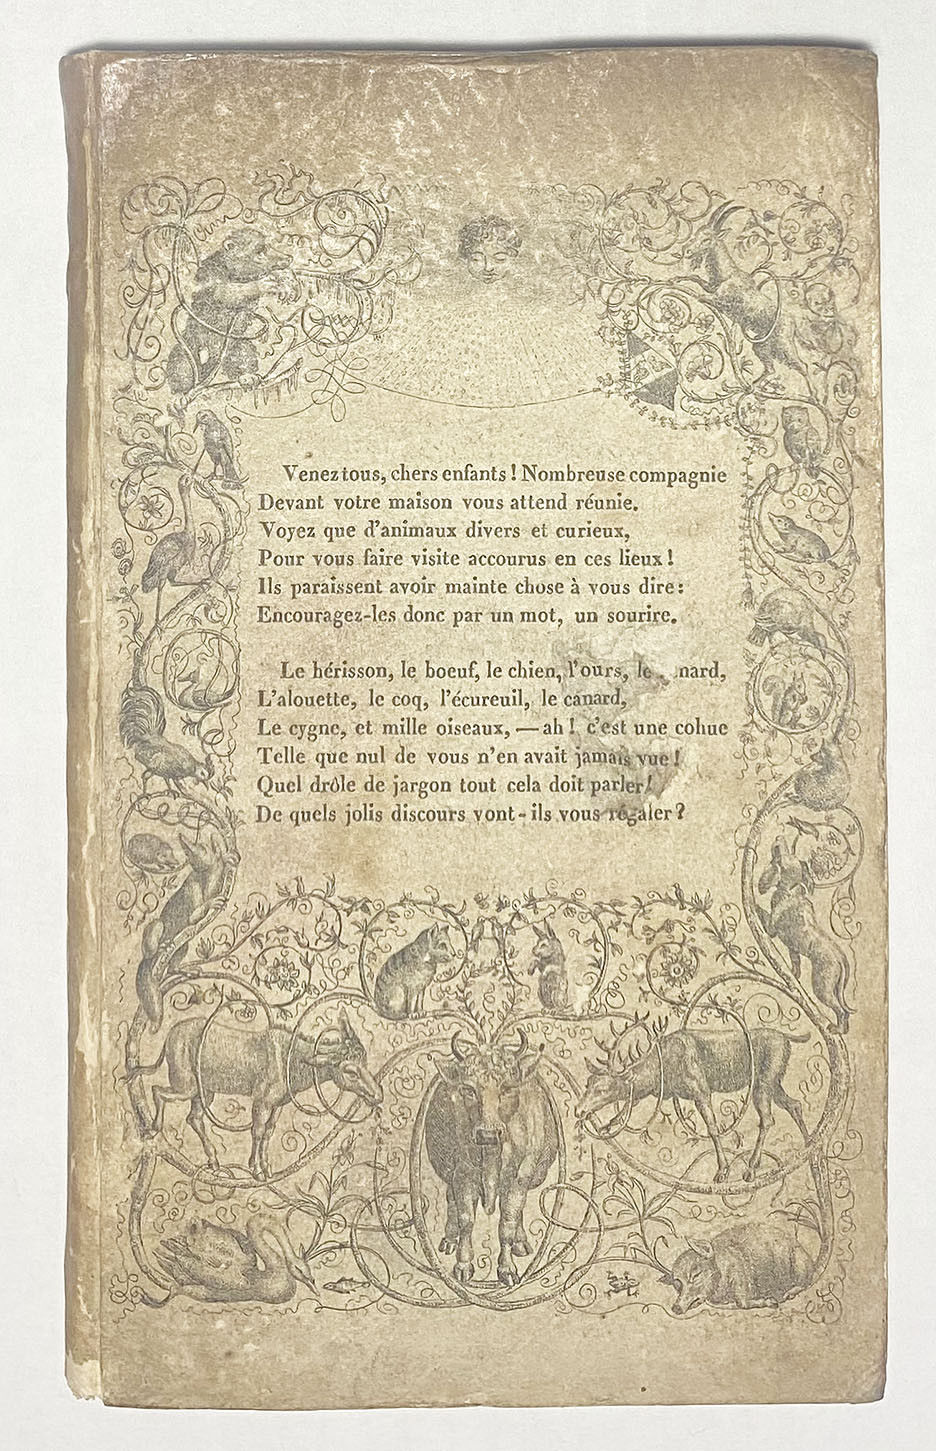 Venez tous, chers enfants ! Nombreuse compagnie
Devant votre maison vous attend réunie.
Voyez que d'animaux divers et curieux,
Pour vous faire visite accourus en ces lieux !
Ils paraissent avoir mainte chose à vous dire :
Encouragez-les donc par un mot, un sourire.
Le hérisson, le boeuf, le chien, l'ours, le nard,
L'alouette, le coq, l'écureuil, le canard,
Le cygne, et mille oiseaux, — ah ! c'est une cohue
Telle que nul de vous n'en avait jamais vue !
Quel drôle de jargon tout cela doit parler !
De quels jolis discours vont-ils vous régaler ?